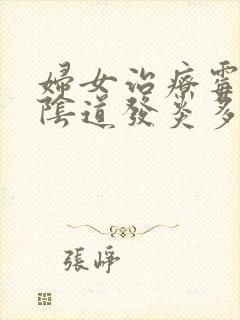 婦女治療霉
陰道發炎多
張崢